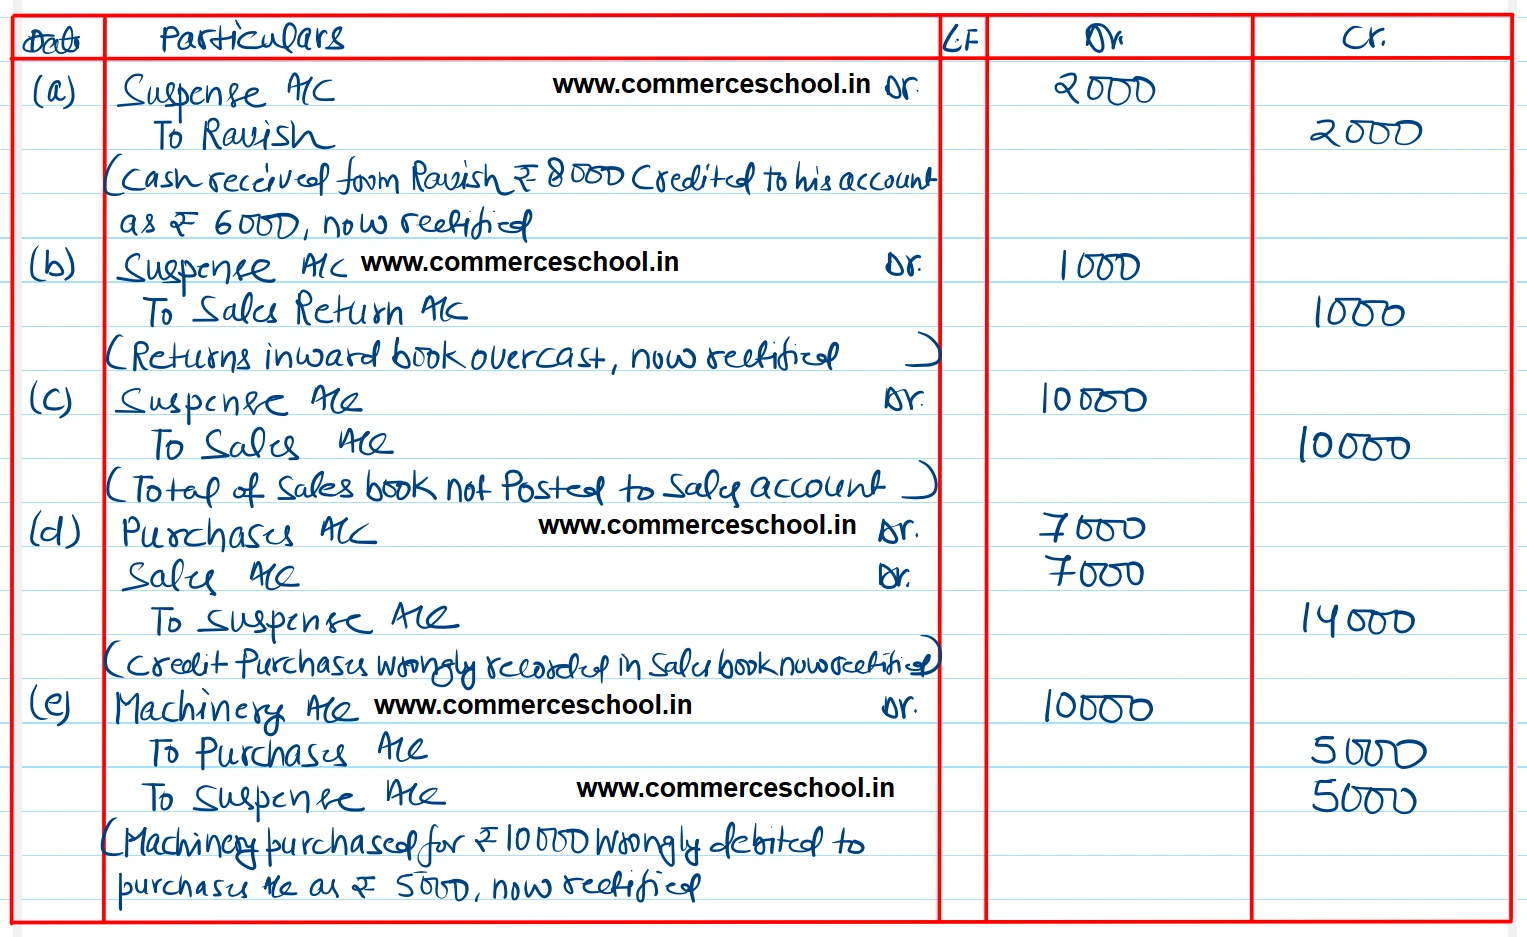 Date Particulars L.F Dr. Cr.
(a) Suspense A/C www.commerceschool.in Dr. 2000
To Ravish 2000
(Cash received from Ravish ₹ 8000 Credited to his account
as ₹ 6000, now rectified
(b) Suspense A/C www.commerceschool.in Dr. 1000
To Sales Return A/C 1000
(Returns inward book overcast, now rectified )
(c) Suspense A/c Dr. 10000
To Sales A/c 10000
(Total of Sales book not Posted to Sales account )
(d) Purchases A/C www.commerceschool.in Dr. 7000
Sales A/c Dr. 7000
To Suspense A/c 14000
(Credit Purchases wrongly recorded in Sales book now rectified)
(e) Machinery A/c www.commerceschool.in Dr. 10000
To Purchases A/c 5000
To Suspense A/c www.commerceschool.in 5000
(Machinery purchased for ₹ 10000 wrongly debited to
purchases A/c as ₹ 5000, now rectified